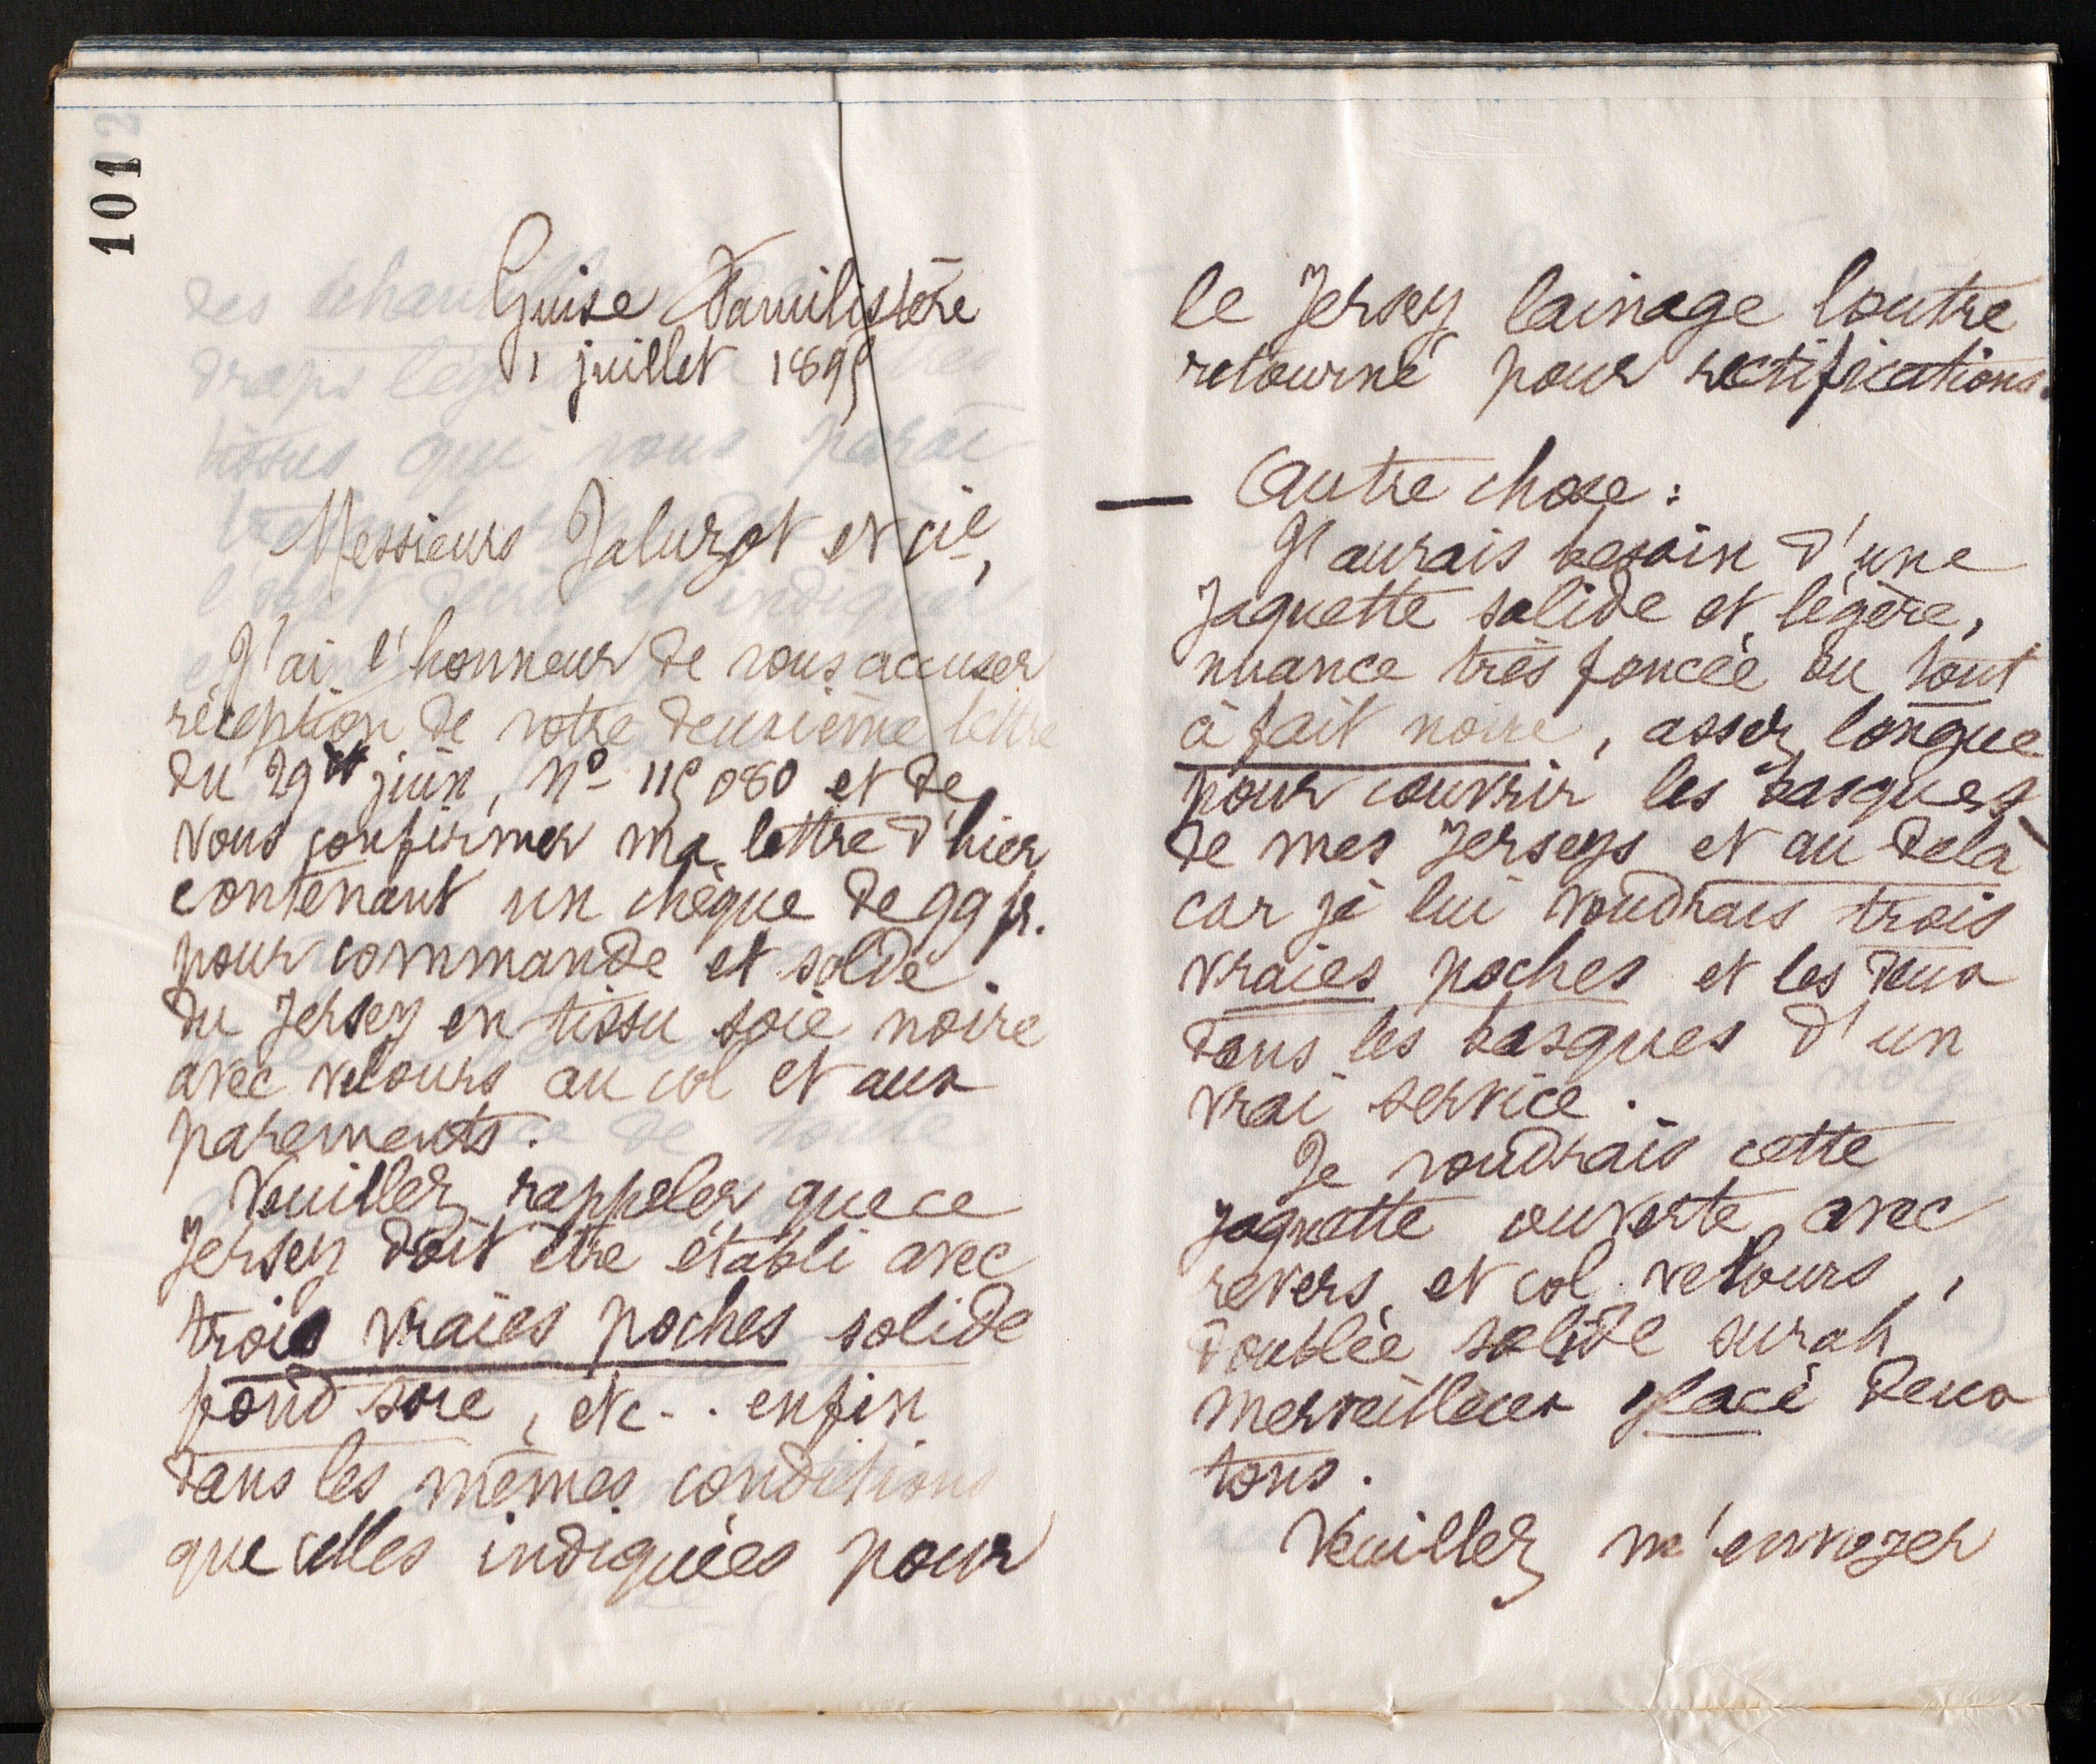 101
Guise Familistère
1 juillet 1895
Messieurs Jaluzot et Cie,
J'ai l'honneur de vous accuser
réception de votre deuxième lettre
du 29 juin, No 115080 et de
vous confirmer ma lettre d'hier
contenant un chèque de 99 fr.
pour commande et solde
du Jersey en tissu soie noire
avec velours au col et aux
parements.
Veuillez rappeler que ce
Jersey doit être établi avec
trois vraies poches solide
fond soie, etc.. enfin
dans les mêmes conditions
que celles indiquées pour
le Jersey lainage loutre
retourné pour rectifications.
— Autre chose :
J'aurais besoin d'une
Jaquette solide et légère,
nuance très foncée ou tout
à fait noire, assez longue
pour couvrir les basques
de mes Jerseys et au delà
car je lui voudrais trois
vraies poches et les deux
dans les basques d'un
vrai service.
Je voudrais cette
jaquette ouverte avec
revers et col velours,
doublée solide surah
merveilleux glacé deux
tons.
Veuillez m'envoyer